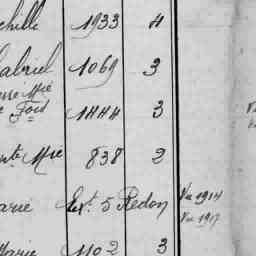 chille 1933 4
Gabriel 1069 3
Fois 1444 3
nte Mie 838 2
arie Ext. 5 Redon Vu 1914
Vu 1917
Marie 1102 3